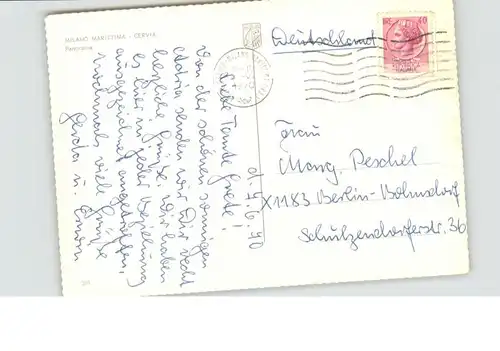 MILANO MARITTIMA - CERVIA
Panorama
d. 7.6.70
Liebe Tante Grete!
Von der schönen sonnigen
Adria senden wir Dir recht
herzliche Grüße. Wir haben
es hier in jeder Beziehung
ausgezeichnet angetroffen.
Nochmals viele Grüße
Gerda u.
Deutschland
40
Frau
Marg. Peschel
X1183 Berlin-Bohnsdorf
Schulzendorferstr. 36